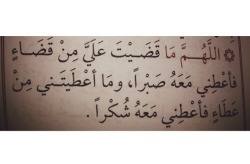 اللَّهُمَّ مَا قَضَيْتَ عَلَيَّ مِنْ قَضَاءٍ
فَأَعْطِنِي مَعَهُ صَبْراً، وَمَا أَعْطَيْتَنِي مِنْ
عَطَاءٍ فَأَعْطِنِي مَعَهُ شُكْراً .